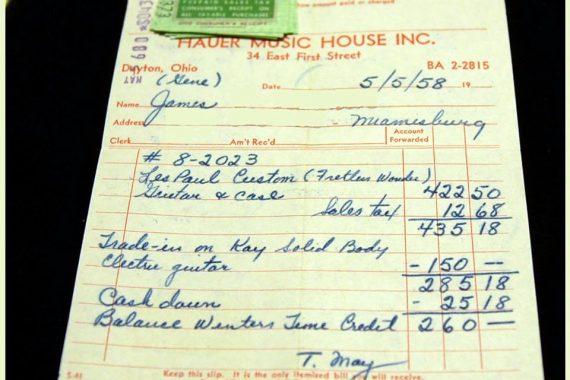 PREPAID SALES TAX
CONSUMER'S RECEIPT ON
ALL TAXABLE PURCHASES
HAUER MUSIC HOUSE INC.
34 East First Street
Dayton, Ohio
BA 2-2815
(Gene)
Date 5/5/58 19
Name James
Address Miamesburg
Clerk Am't Rec'd Account Forwarded
# 8-2023
Les Paul Custom (Fretless Wonder)
Guitar & case 422 50
Sales tax 12 68
435 18
Trade-in on Kay Solid Body
Electric guitar - 150 —
285 18
Cash down - 25 18
Balance Winters Time Credit 260 —
T. May
S-41 Keep this slip. It is the only itemized bill you will receive.